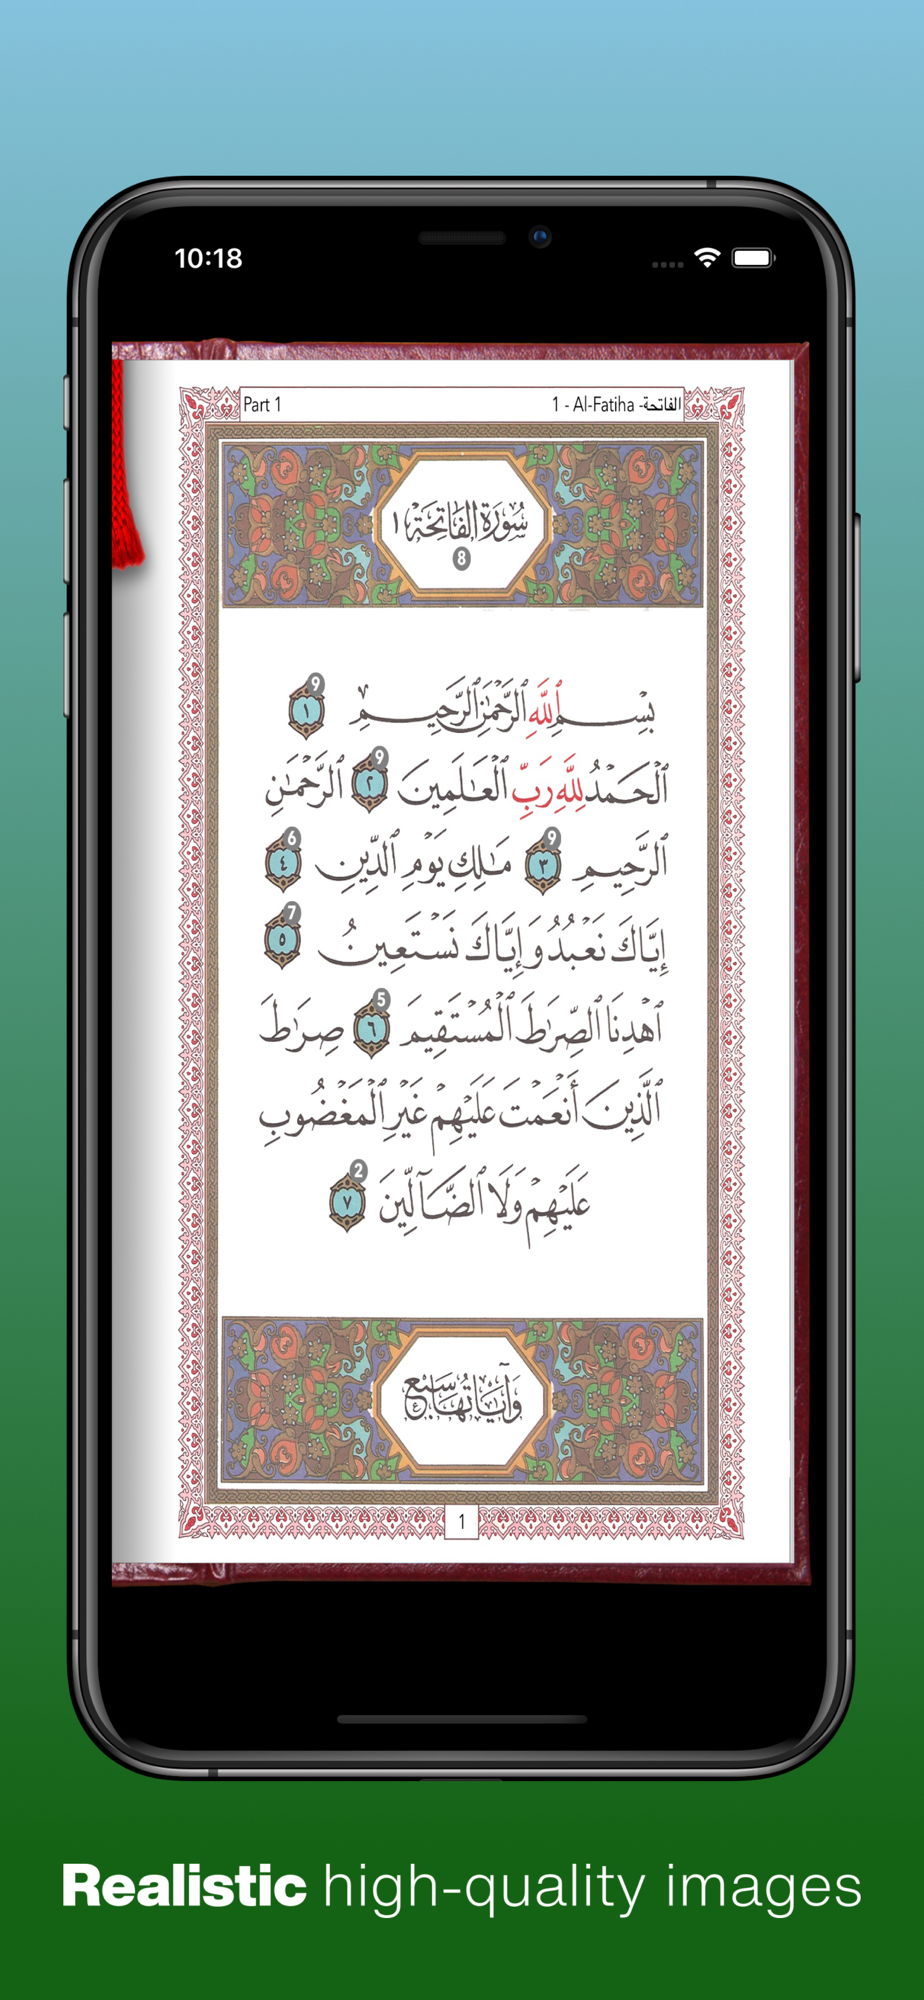 10:18
Part 1
1 - Al-Fatiha -الفاتحة
سُورَةُ الفَاتِحَة ١
8
بِسْمِ ٱللَّهِ ٱلرَّحْمَٰنِ ٱلرَّحِيمِ ١ 9
ٱلْحَمْدُ لِلَّهِ رَبِّ ٱلْعَـٰلَمِينَ ٢ 9 ٱلرَّحْمَـٰنِ
ٱلرَّحِيمِ ٣ 9 مَـٰلِكِ يَوْمِ ٱلدِّينِ ٤ 6
إِيَّاكَ نَعْبُدُ وَإِيَّاكَ نَسْتَعِينُ ٥ 7
ٱهْدِنَا ٱلصِّرَٰطَ ٱلْمُسْتَقِيمَ ٦ 5 صِرَٰطَ
ٱلَّذِينَ أَنْعَمْتَ عَلَيْهِمْ غَيْرِ ٱلْمَغْضُوبِ
عَلَيْهِمْ وَلَا ٱلضَّآلِّينَ ٧ 2
وَآيَاتُهَا سَبْعٌ
1
Realistic high-quality images